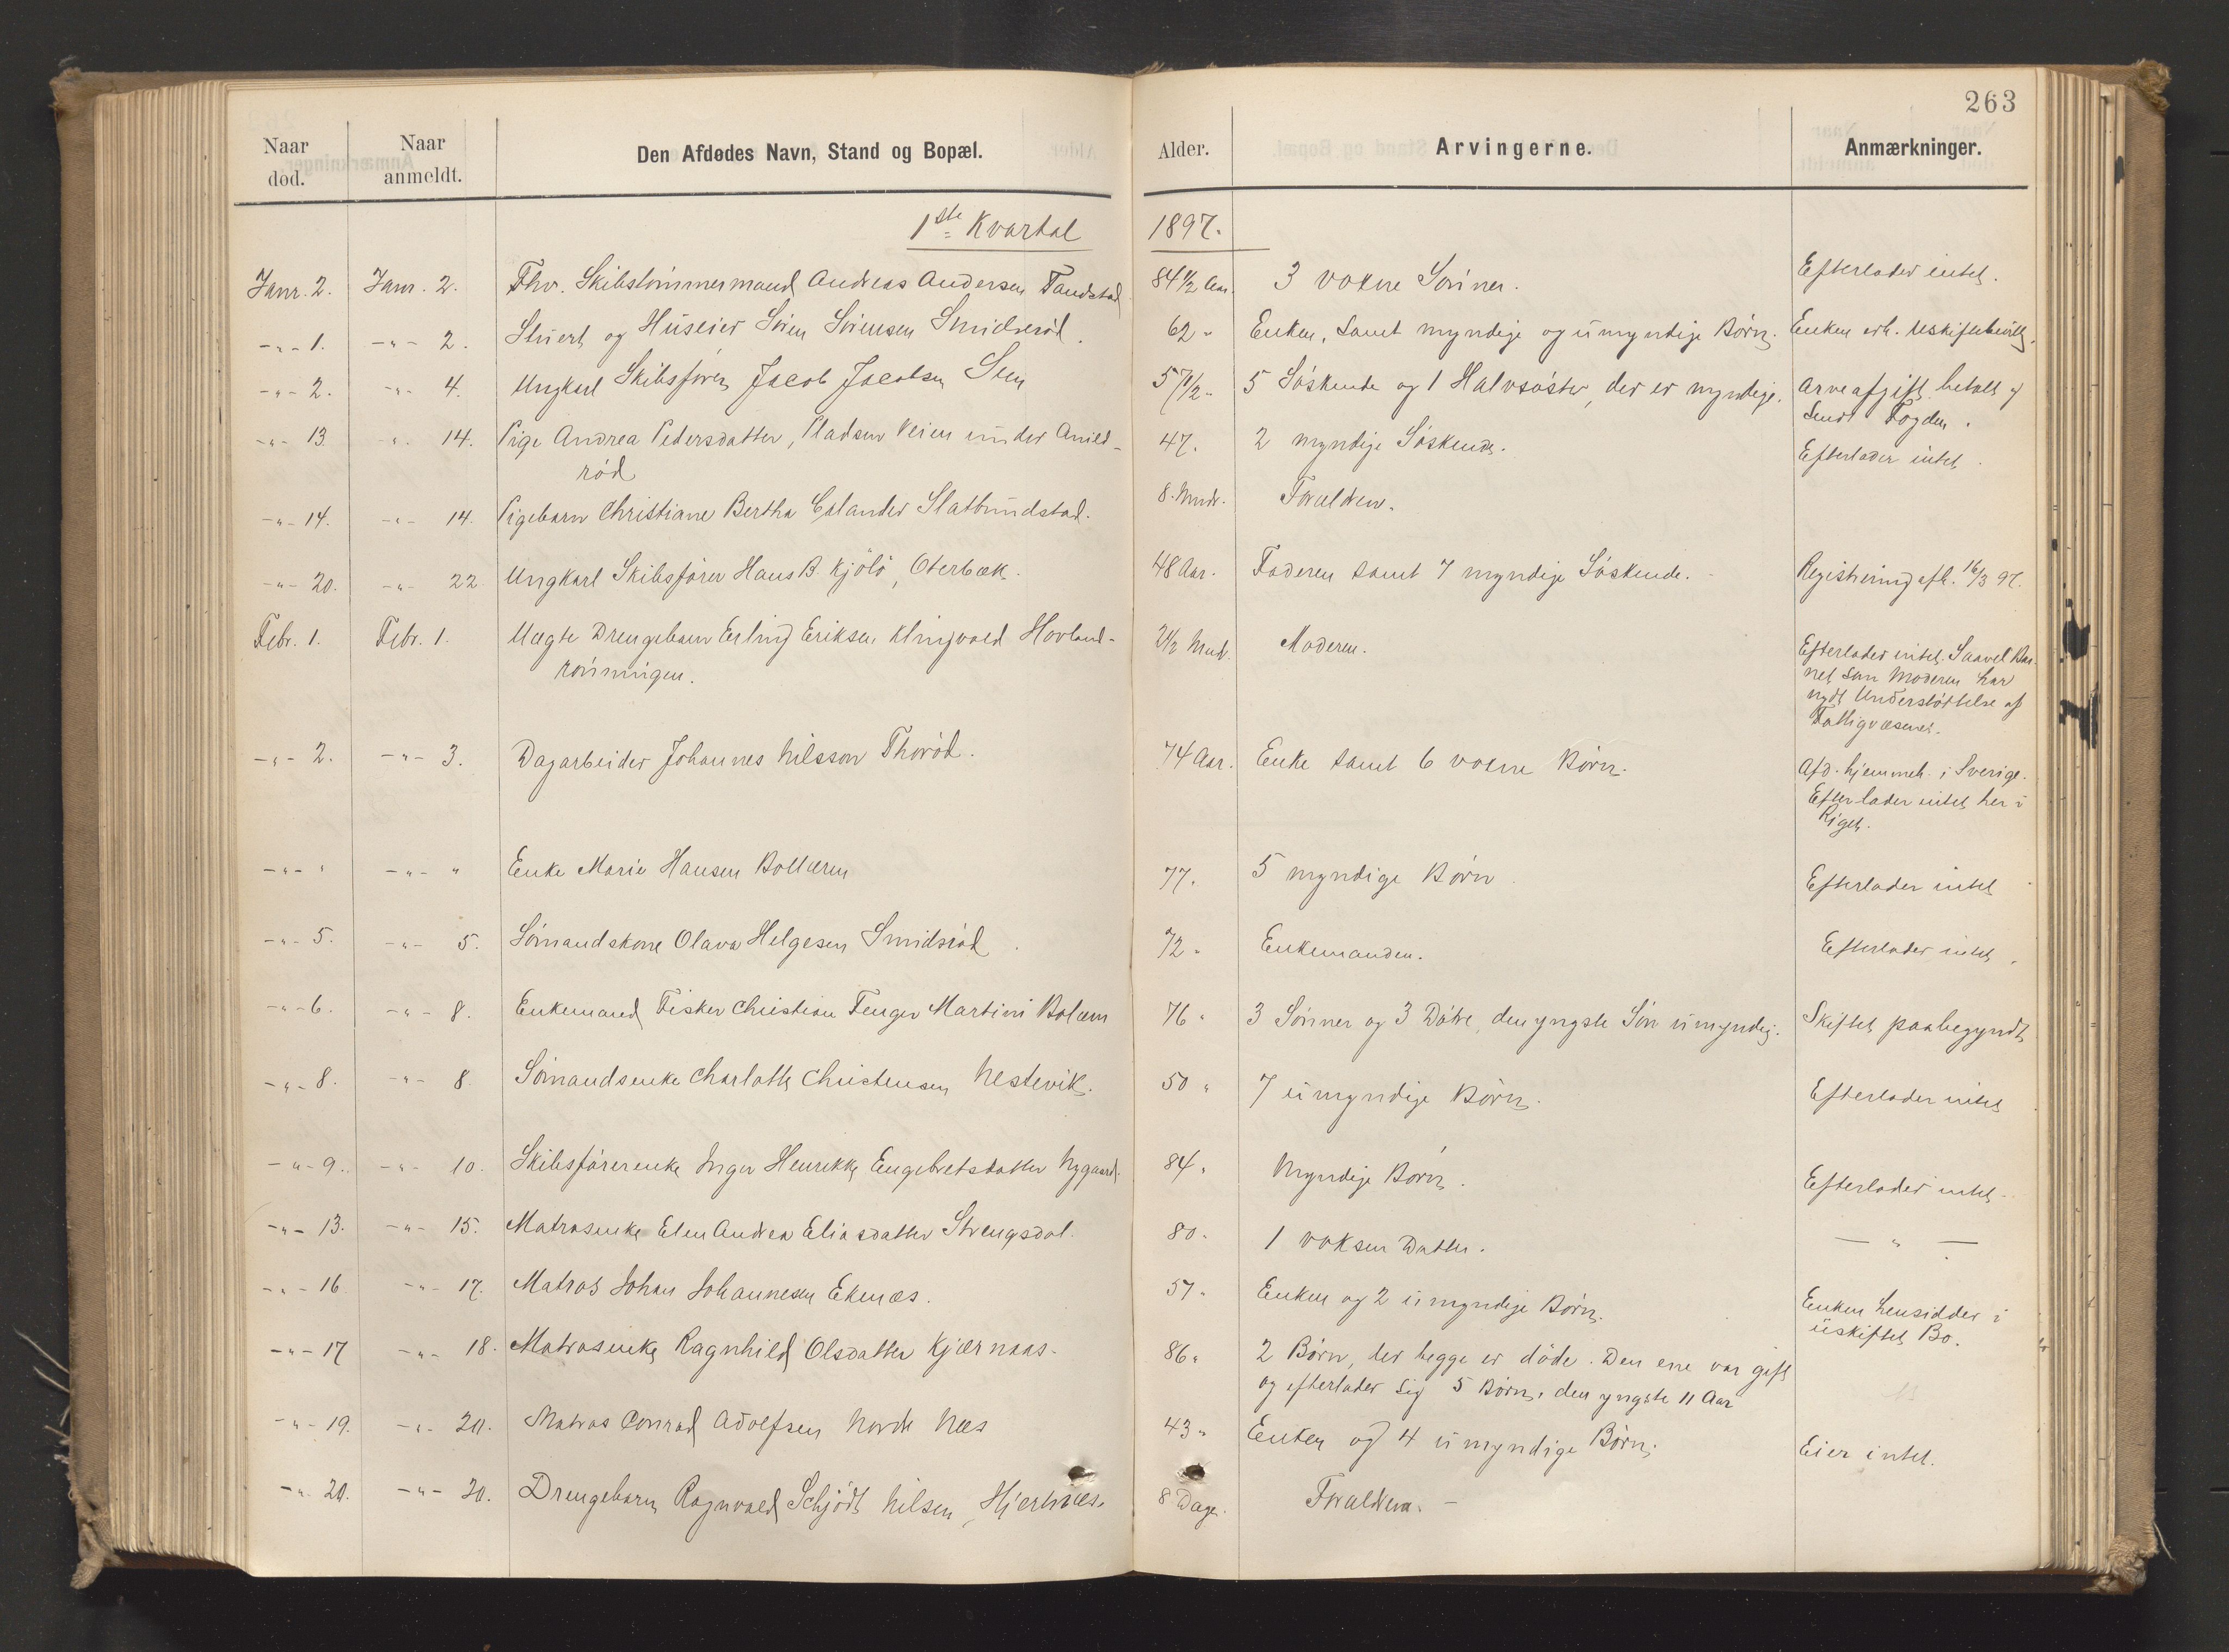 263
Naar død. Naar anmeldt. Den Afdødes Navn, Stand og Bopæl. Alder. Arvingerne. Anmærkninger.
1ste Kvartal 1897.
Janr. 2. Janr. 2. Fhv. Skibstömmermand Andreas Andersen Tandstad 84 1/2 Aar. 3 voxne Sönner. Efterlader intet.
-"- 1. -"- 2. Stuert og Huseier Sören Sörensen Smidsröd. 62 " Enken, samt myndige og umyndige Börn. Enken erh. Uskiftebevill.
-"- 2. -"- 4. Ungkarl Skibsförer Jacob Jacobsen Sten 57 1/2 " 5 Söskende og 1 Halvsöster, der er myndige. Arveafgift betalt og
sendt Fogden.
-"- 13. -"- 14. Pige Andrea Pedersdatter, Pladsen Veien under Anild-
röd 47. 2 myndige Söskende. Efterlader intet.
-"- 14. -"- 14. Pigebarn Christiane Bertha Calander Slatbrundstad. 8 Mndr. Forældren.
-"- 20. -"- 22. Ungkarl Skibsförer Hans B. Kjölö, Oterbæk. 48 Aar. Faderen samt 7 myndige Söskende. Registrering afh. 16/3 97.
Febr. 1. Febr. 1. Uægte Drengebarn Erling Eriksen Klingvald Hovland-
rönningen. 2 1/2 Mnd. Moderen. Efterlader intet. Saavel Bar-
net som Moderen har
nydt Understöttelse af
Fattigvæsenet.
-"- 2. -"- 3. Dagarbeider Johannes Nilsson Thoröd. 74 Aar. Enke samt 6 voxne Börn. Afd. hjemmeh. i Sverige.
Efterlader intet her i
Riget.
-"- " -"- " Enke Marie Hansen Bollæren 77. 5 myndige Börn. Efterlader intet
-"- 5. -"- 5. Sömandskone Olava Helgesen Smidsröd 72 " Enkemanden. Efterlader intet.
-"- 6. -"- 8. Enkemand Fisker Christian Fenger Martini Bolæren 76 " 3 Sönner og 3 Dötre, den yngste Sön umyndig. Skiftet paabegyndt
-"- 8. -"- 8. Sömandsenke Charlotte Christensen Nestevik. 50 " 7 umyndige Börn. Efterlader intet
-"- 9. -"- 10. Skibsförerenke Inger Henrikke Engebretsdatter Nygaard. 84 " Myndige Börn. Efterlader intet.
-"- 13. -"- 15. Matrosenke Elen Andrea Eliasdatter Strengsdal. 80 " 1 voksen Datter. — " —
-"- 16. -"- 17. Matros Johan Johannesen Ekenæs. 57 " Enken og 2 umyndige Börn. Enken hensidder i
uskiftet Bo.
-"- 17 -"- 18. Matrosenke Ragnhild Olsdatter Kjærnaas. 86 " 2 Börn, der begge er döde. Den ene var gift
og efterlader sig 5 Börn, den yngste 11 Aar
-"- 19. -"- 20. Matros Conrad Adolfsen Nordre Næs 43 " Enken og 4 umyndige Börn. Eier intet.
-"- 20. -"- 20. Drengebarn Ragnvald Schjödt Nilsen, Hjertnæs. 8 Dage. Forældrene.